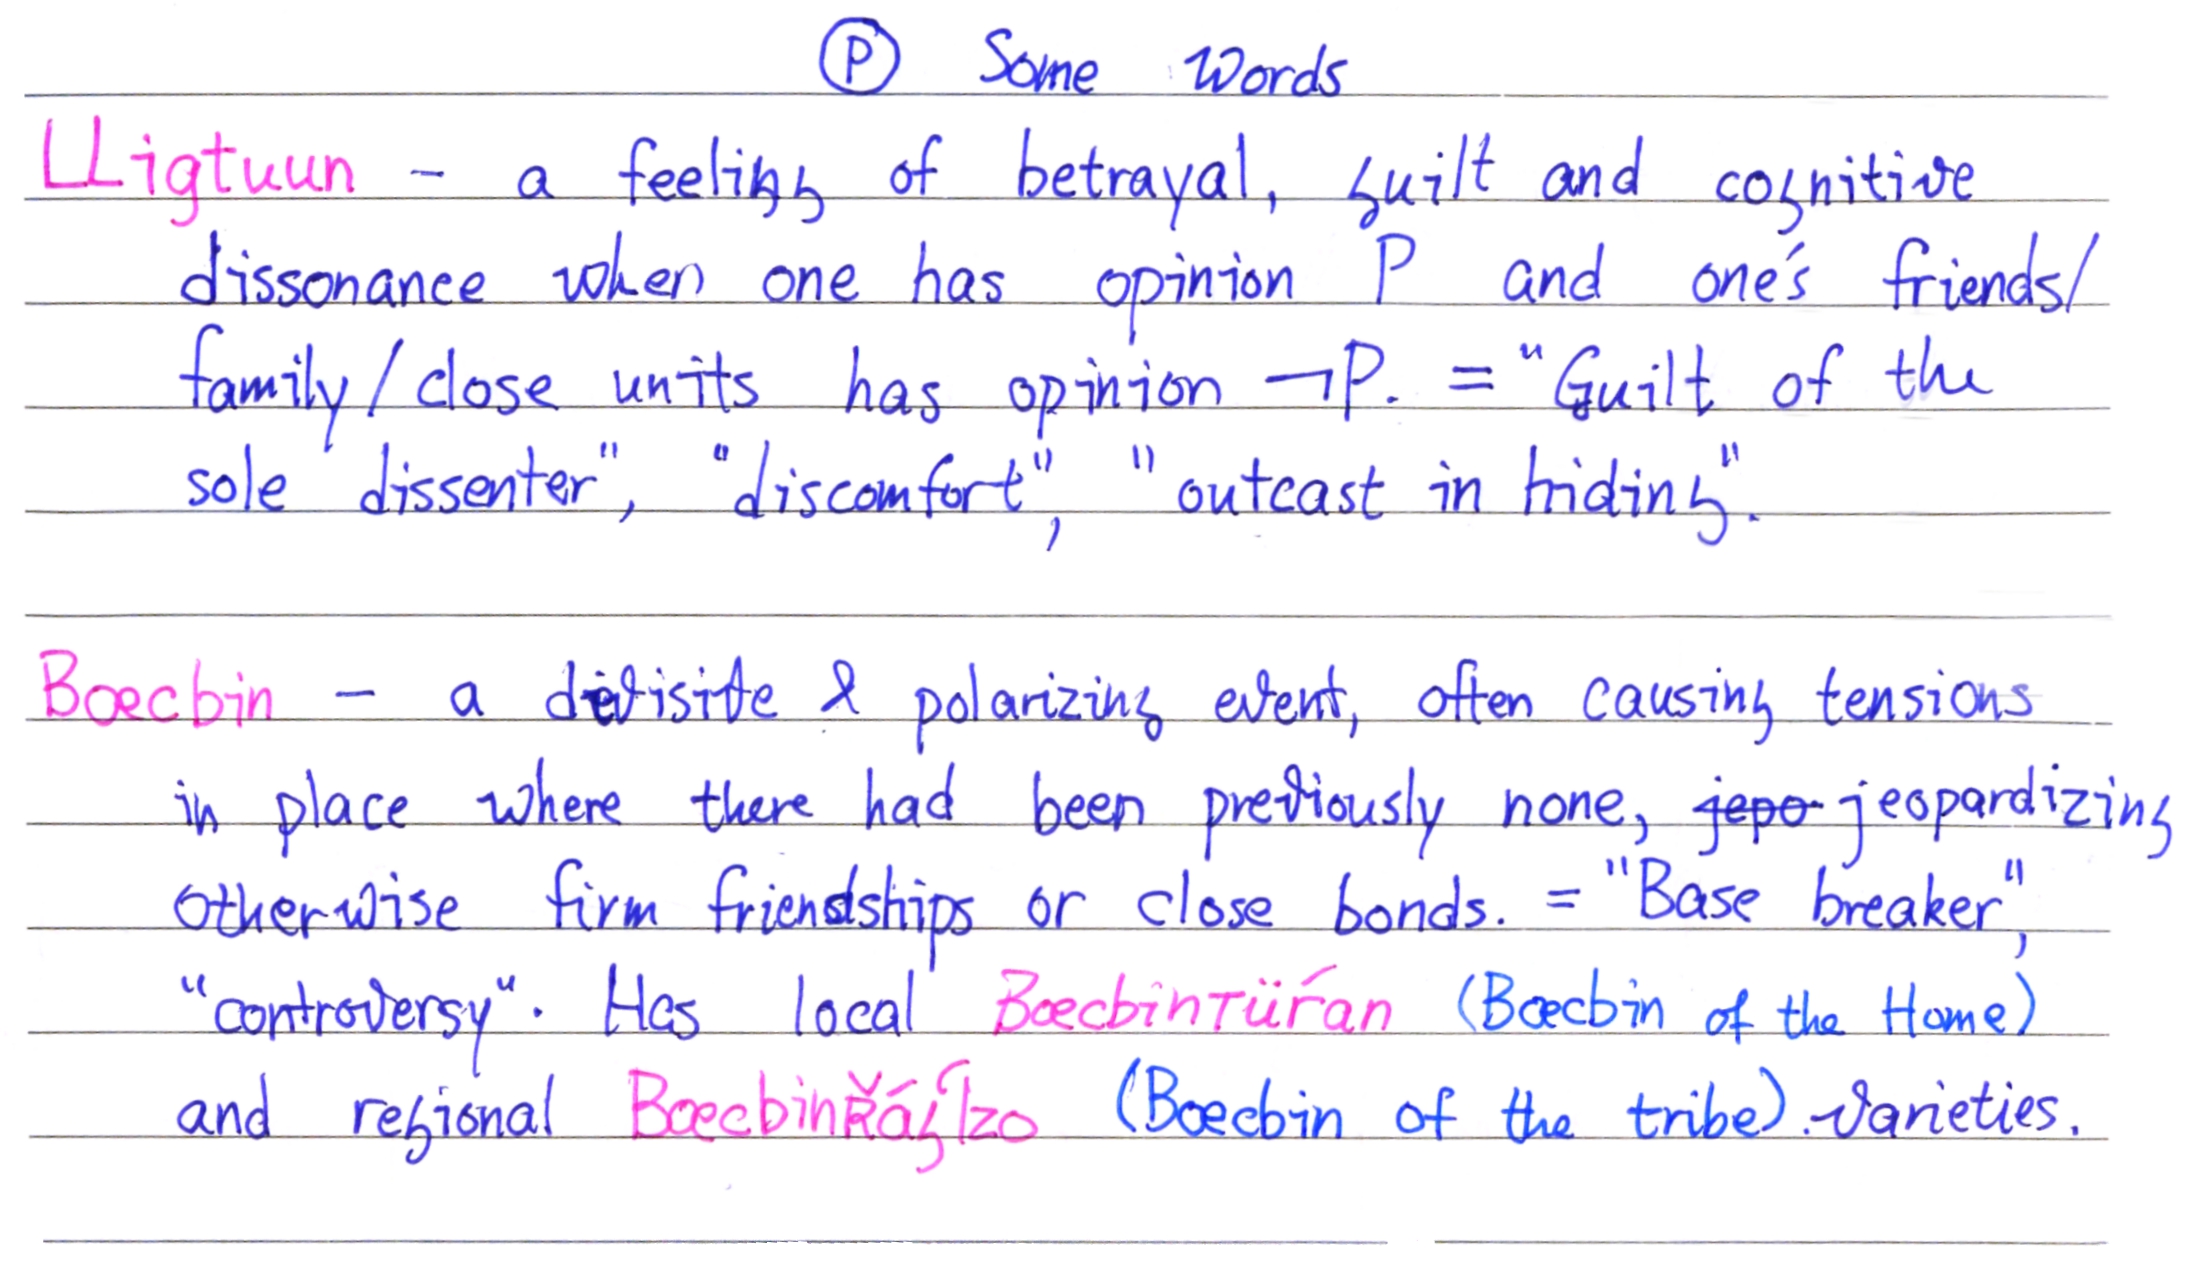 Ⓟ Some Words
LLigtuun - a feeling of betrayal, guilt and cognitive
dissonance when one has opinion P and one's friends/
family/close units has opinion ¬P. = "Guilt of the
sole dissenter", "discomfort", "outcast in hiding".
Boecbin - a divisive & polarizing event, often causing tensions
in place where there had been previously none, jepo jeopardizing
otherwise firm friendships or close bonds. = "Base breaker",
"controversy". Has local (Boecbin of the Home)
and regional (Boecbin of the tribe). varieties.